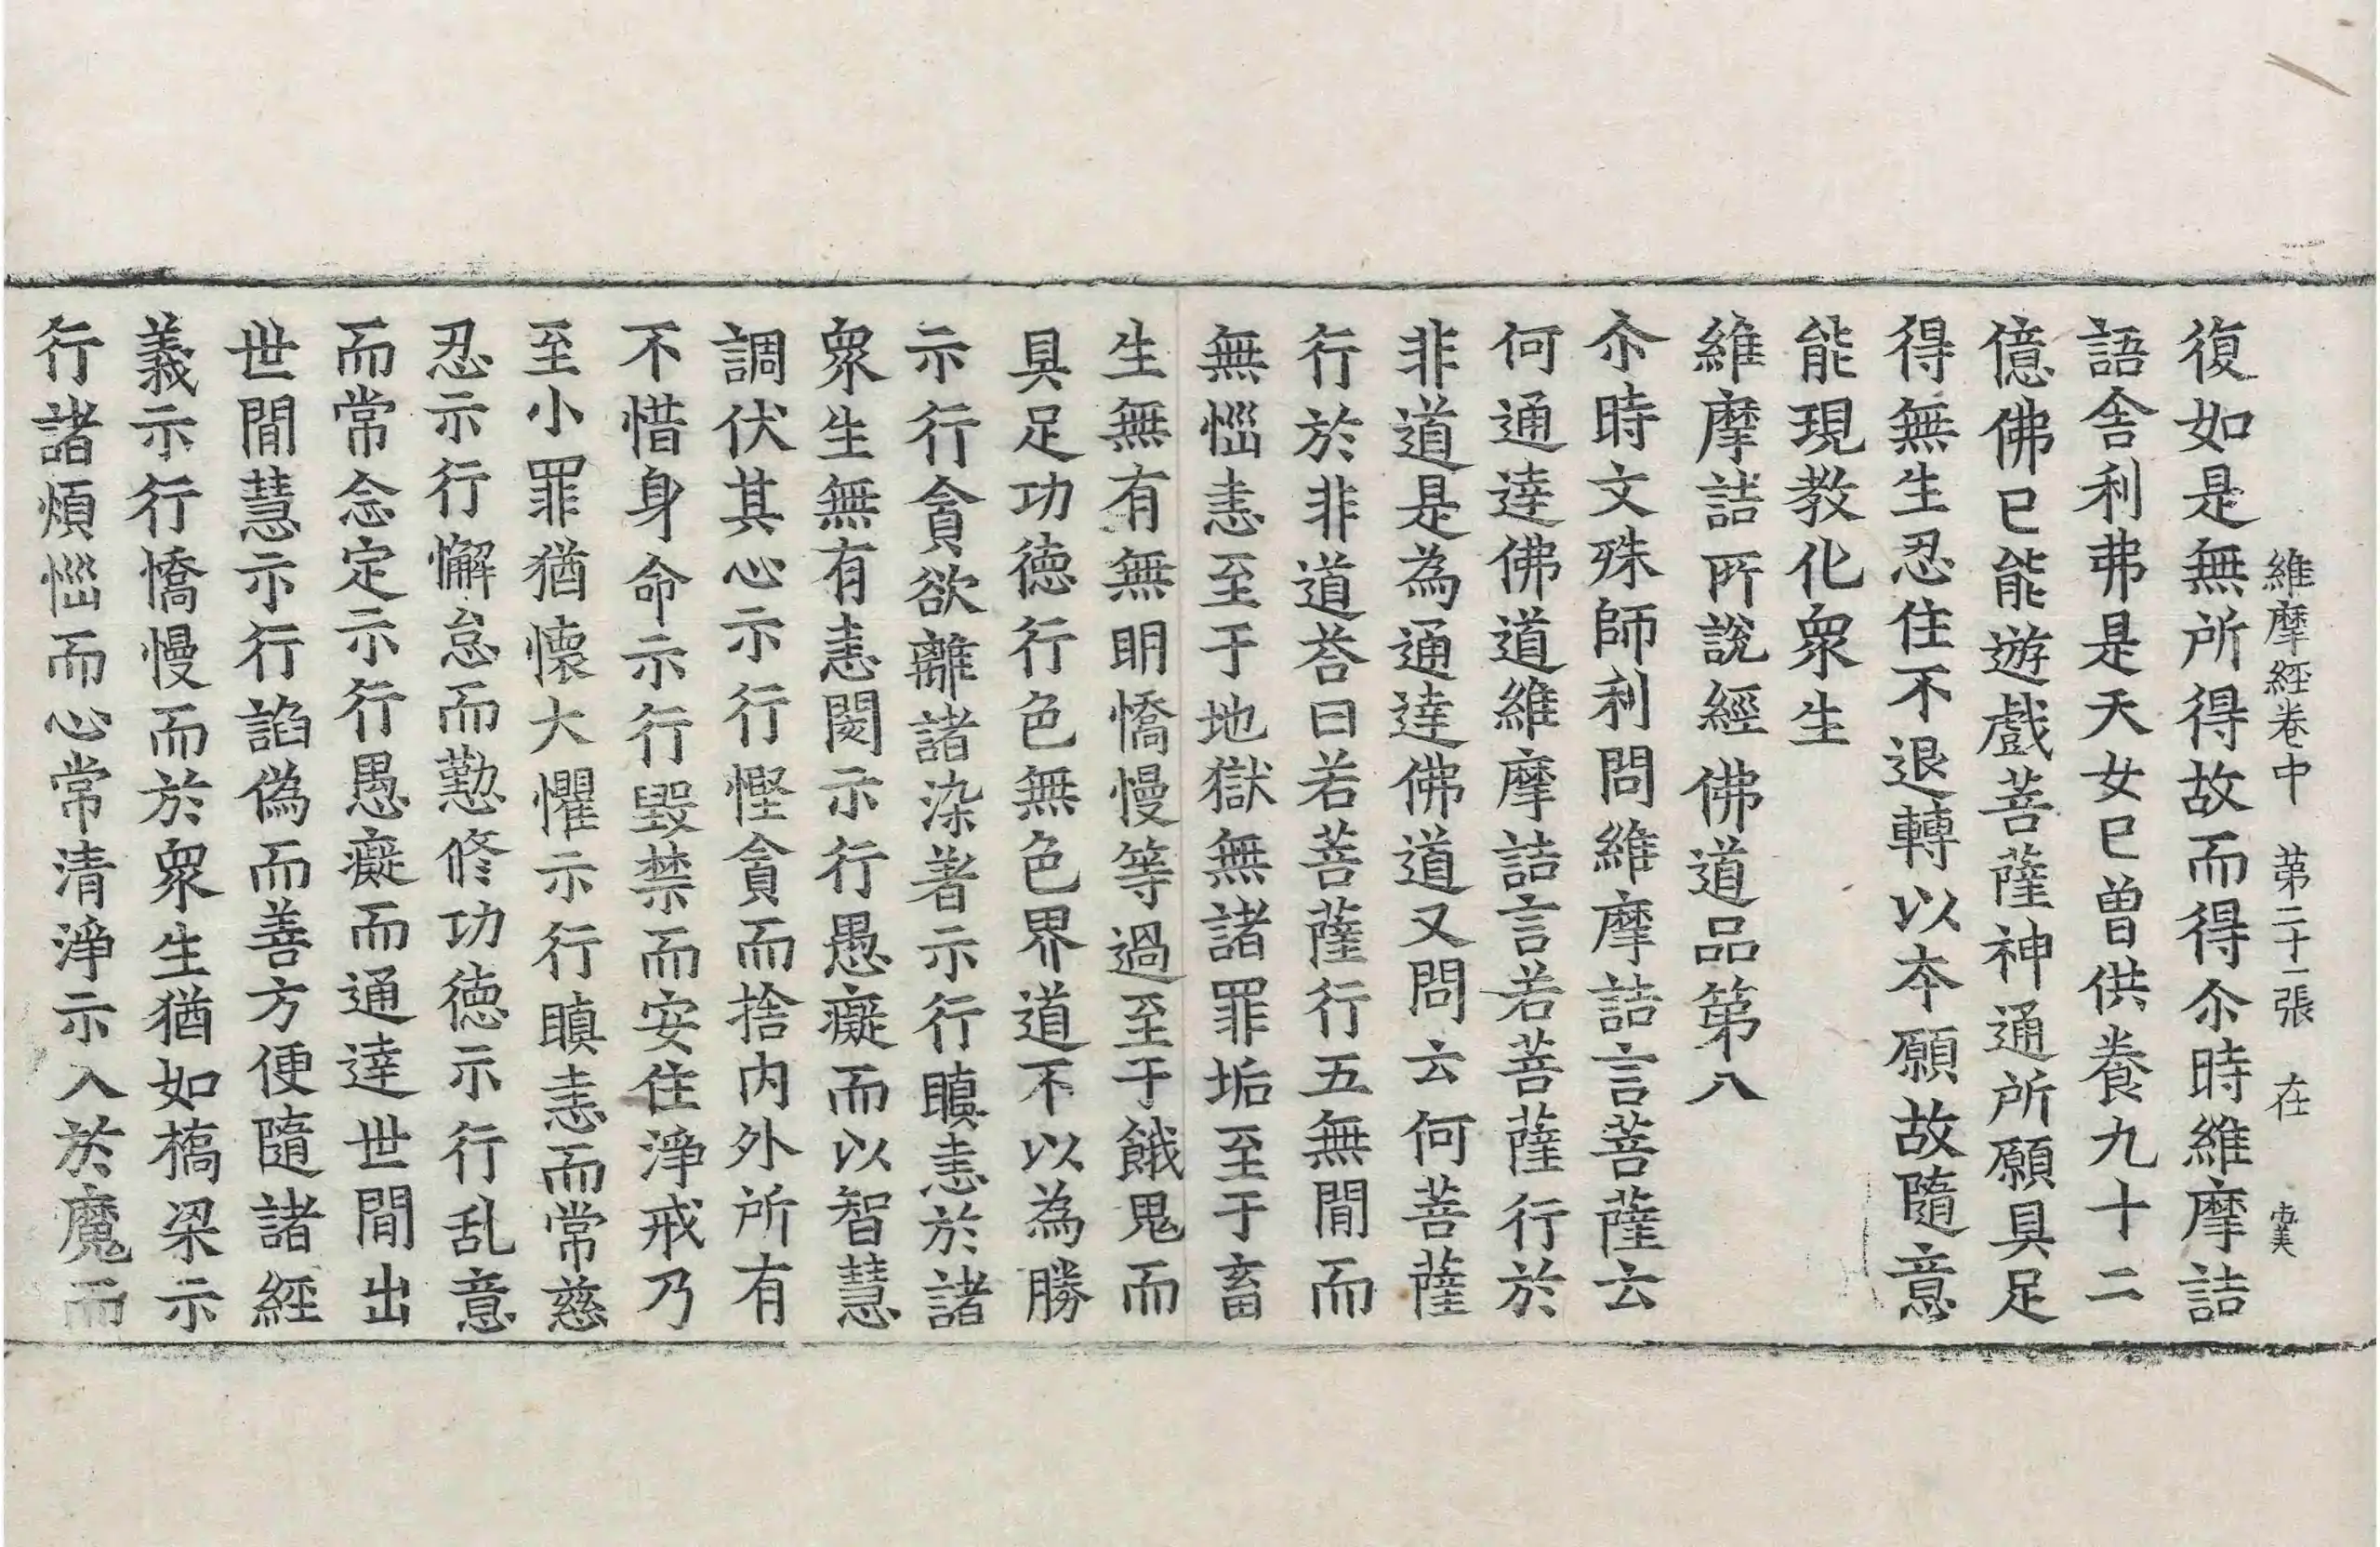 維摩經卷中 苐二十一張 在
復如是無所得故而得尒時維摩詰
語舍利弗是天女已曾供養九十二
億佛已能遊戲菩薩神通所願具足
得無生忍住不退轉以夲願故隨意
能現教化衆生
維摩詰所說經佛道品第八
尒時文殊師利問維摩詰言菩薩云
何通達佛道維摩詰言若菩薩行於
非道是為通達佛道又問云何菩薩
行於非道荅曰若菩薩行五無間而
無惱恚至于地獄無諸罪垢至于畜
生無有無明憍慢等過至于餓鬼而
具足功德行色無色界道不以為勝
示行貪欲離諸染著示行瞋恚於諸
衆生無有恚閡示行愚癡而以智慧
調伏其心示行慳貪而捨内外所有
不惜身命示行毀禁而安住淨戒乃
至小罪猶懷大懼示行瞋恚而常慈
忍示行懈怠而懃修功德示行乱意
而常念定示行愚癡而通達世間出
世間慧示行諂偽而善方便隨諸經
義示行憍慢而於衆生猶如橋梁示
行諸煩惱而心常清淨示入於魔而